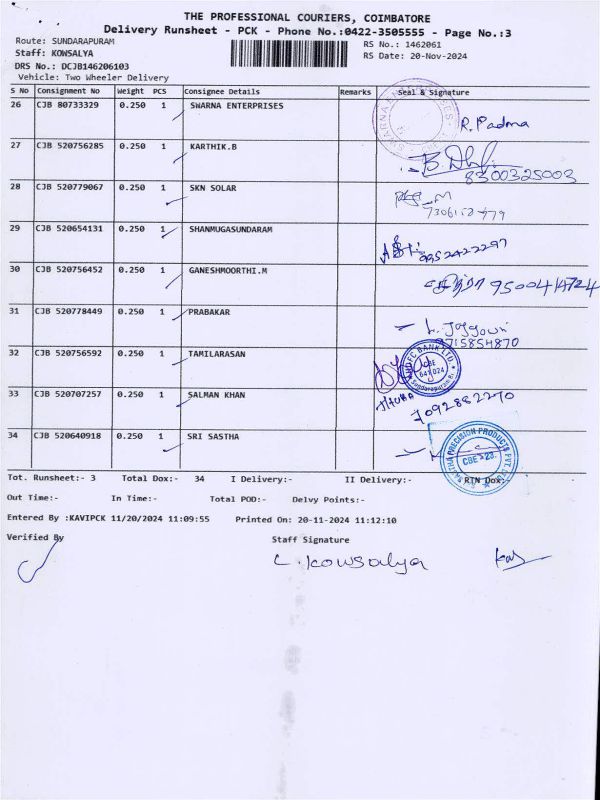 THE PROFESSIONAL COURIERS, COIMBATORE
Delivery Runsheet - PCK - Phone No.:0422-3505555 - Page No.:3
Route: SUNDARAPURAM RS No.: 1462061
Staff: KOWSALYA RS Date: 20-Nov-2024
DRS No.: DCJB146206103
Vehicle: Two Wheeler Delivery
S No Consignment No Weight PCS Consignee Details Remarks Seal & Signature
26 CJB 80733329 0.250 1 SWARNA ENTERPRISES
R. Padma
27 CJB 520756285 0.250 1 KARTHIK.B
8300325003
28 CJB 520779067 0.250 1 SKN SOLAR
29 CJB 520654131 0.250 1 SHANMUGASUNDARAM
9952422297
30 CJB 520756452 0.250 1 GANESHMOORTHI.M
9500414724
31 CJB 520778449 0.250 1 PRABAKAR
9715854870
32 CJB 520756592 0.250 1 TAMILARASAN
33 CJB 520707257 0.250 1 SALMAN KHAN
7092882270
34 CJB 520640918 0.250 1 SRI SASTHA
PRECISION PRODUCTS
CBE - 23.
Tot. Runsheet:- 3 Total Dox:- 34 I Delivery:- II Delivery:- RTN Dox:
Out Time:- In Time:- Total POD:- Delvy Points:-
Entered By :KAVIPCK 11/20/2024 11:09:55 Printed On: 20-11-2024 11:12:10
Verified By Staff Signature
L. Kowsalya